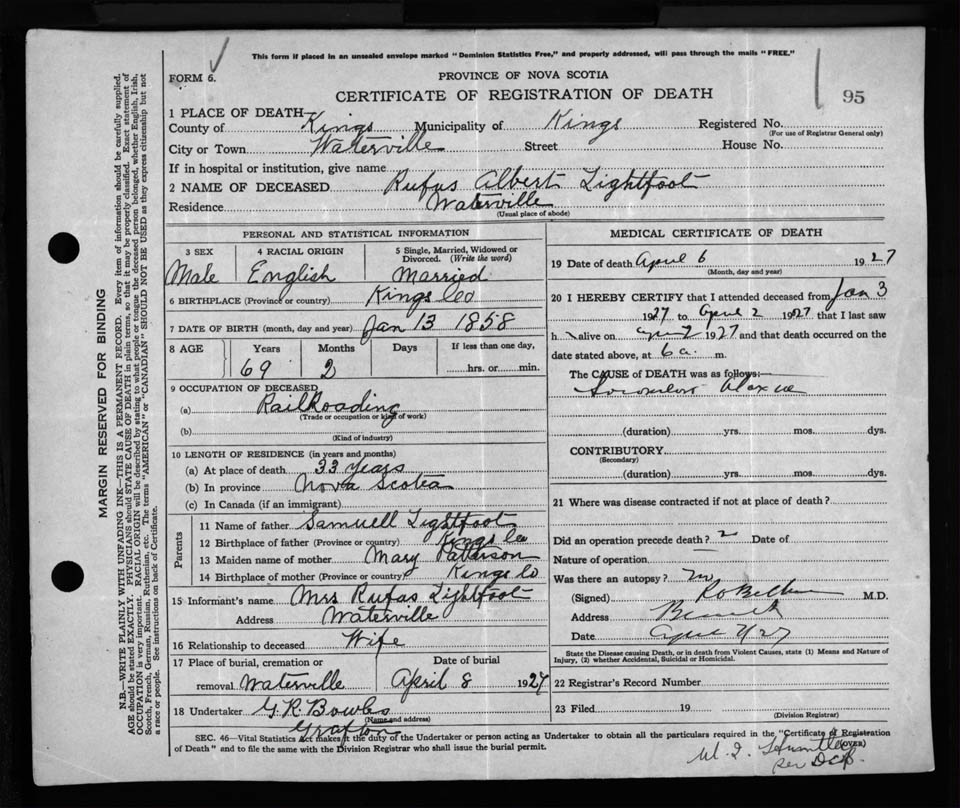 This form if placed in an unsealed envelope marked "Dominion Statistics Free," and properly addressed, will pass through the mails "FREE."
FORM 6.
PROVINCE OF NOVA SCOTIA
CERTIFICATE OF REGISTRATION OF DEATH
95
1 PLACE OF DEATH—
County of Kings Municipality of Kings Registered No.
(For use of Registrar General only)
City or Town Waterville Street House No.
If in hospital or institution, give name
2 NAME OF DECEASED Rufus Albert Lightfoot
Residence Waterville
(Usual place of abode)
PERSONAL AND STATISTICAL INFORMATION
3 SEX 4 RACIAL ORIGIN 5 Single, Married, Widowed or Divorced. (Write the word)
Male English Married
6 BIRTHPLACE (Province or country) Kings Co
7 DATE OF BIRTH (month, day and year) Jan 13 1858
8 AGE Years Months Days If less than one day,
69 2 hrs. or min.
9 OCCUPATION OF DECEASED
(a) RailRoading
(Trade or occupation or kind of work)
(b)
(Kind of industry)
10 LENGTH OF RESIDENCE (in years and months)
(a) At place of death 33 years
(b) In province Nova Scotia
(c) In Canada (if an immigrant)
Parents
11 Name of father Samuell Lightfoot
12 Birthplace of father (Province or country) Kings Co
13 Maiden name of mother Mary Patterson
14 Birthplace of mother (Province or country) Kings Co
15 Informant's name Mrs Rufas Lightfoot
Address Waterville
16 Relationship to deceased Wife
17 Place of burial, cremation or Date of burial
removal Waterville April 8 1927
18 Undertaker G. R. Bowles
(Name and address)
Grafton
MEDICAL CERTIFICATE OF DEATH
19 Date of death April 6 1927
(Month, day and year)
20 I HEREBY CERTIFY that I attended deceased from Jan 3
1927 to April 2 1927 that I last saw
h alive on 1927 and that death occurred on the
date stated above, at 6 a. m.
The CAUSE of DEATH was as follows:—
Ataxia
(duration) yrs. mos. dys.
CONTRIBUTORY
(Secondary)
(duration) yrs. mos. dys.
21 Where was disease contracted if not at place of death?
Did an operation precede death? Date of
Nature of operation
Was there an autopsy? no
(Signed) M.D.
Address Berwick
Date
State the Disease causing Death, or in death from Violent Causes, state (1) Means and Nature of
Injury, (2) whether Accidental, Suicidal or Homicidal.
22 Registrar's Record Number
23 Filed 19
(Division Registrar)
SEC. 46—Vital Statistics Act makes it the duty of the Undertaker or person acting as Undertaker to obtain all the particulars required in the "Certificate of Registration
of Death" and to file the same with the Division Registrar who shall issue the burial permit.
(OVER)
per
MARGIN RESERVED FOR BINDING
N.B.—WRITE PLAINLY WITH UNFADING INK—THIS IS A PERMANENT RECORD. Every item of information should be carefully supplied.
AGE should be stated EXACTLY. PHYSICIANS should STATE CAUSE OF DEATH in plain terms, so that it may be properly classified. Exact statement of
OCCUPATION is very important. RACIAL ORIGIN will be described by stating to what people or tongue the deceased person belonged, whether English, Irish,
Scotch, French, German, Russian, Ruthenian, etc. The terms "AMERICAN" or "CANADIAN" SHOULD NOT BE USED as they express citizenship but not
a race or people. See instructions on back of Certificate.